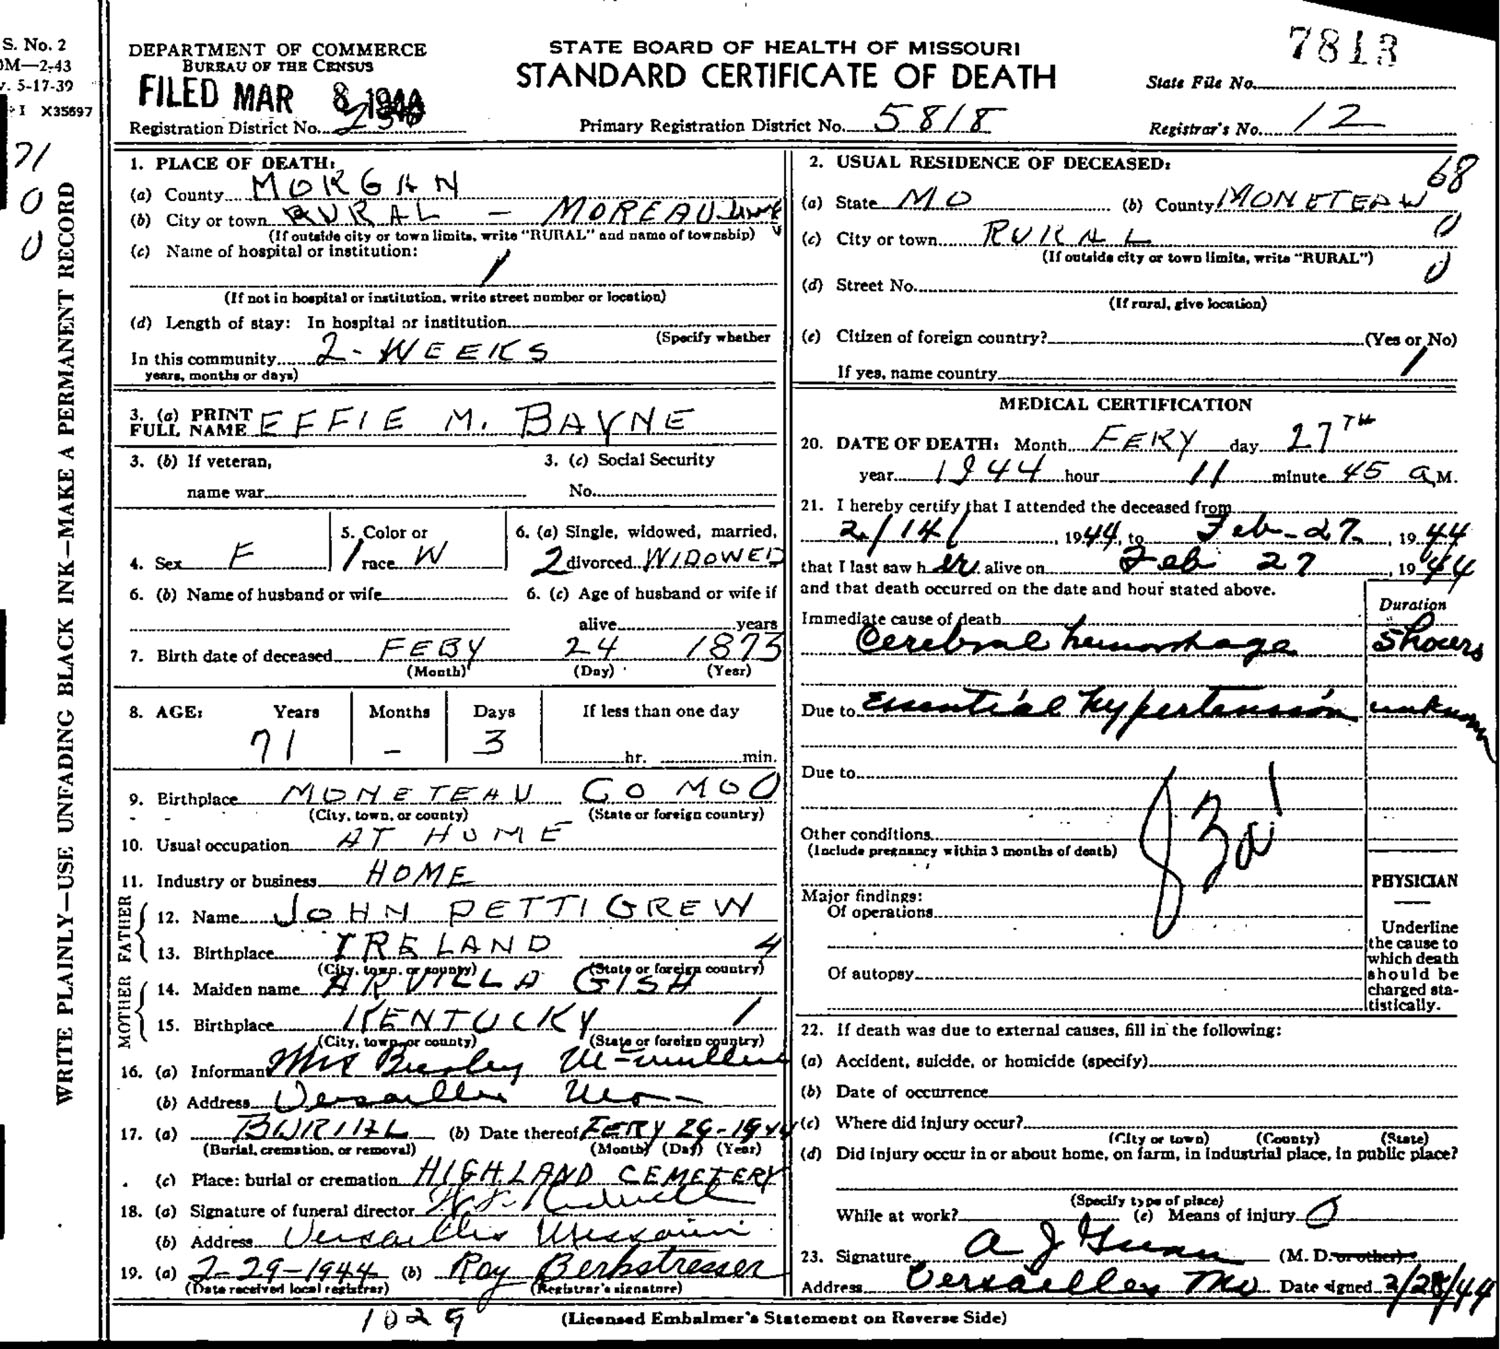 S. No. 2
OM—2-43
v. 5-17-39
I X35697
71
0
0
WRITE PLAINLY—USE UNFADING BLACK INK—MAKE A PERMANENT RECORD
DEPARTMENT OF COMMERCE
BUREAU OF THE CENSUS
FILED MAR 8 1944
Registration District No.
STATE BOARD OF HEALTH OF MISSOURI
STANDARD CERTIFICATE OF DEATH
Primary Registration District No. 5818
7813
State File No.
Registrar's No. 12
1. PLACE OF DEATH:
(a) County MORGAN
(b) City or town RURAL – MOREAU
(If outside city or town limits, write "RURAL" and name of township)
(c) Name of hospital or institution:
(If not in hospital or institution, write street number or location)
(d) Length of stay: In hospital or institution
(Specify whether
In this community 2-WEEKS
years, months or days)
2. USUAL RESIDENCE OF DECEASED:
68
(a) State MO (b) County MONETEAU
(c) City or town RURAL 0
(If outside city or town limits, write "RURAL")
0
(d) Street No.
(If rural, give location)
(e) Citizen of foreign country? (Yes or No)
If yes, name country
3. (a) PRINT FULL NAME EFFIE M. BAYNE
3. (b) If veteran, name war
3. (c) Social Security No.
4. Sex F
5. Color or race W
6. (a) Single, widowed, married, 2 divorced WIDOWED
6. (b) Name of husband or wife
6. (c) Age of husband or wife if alive years
7. Birth date of deceased FEBY 24 1873
(Month) (Day) (Year)
8. AGE: Years Months Days If less than one day
71 – 3 hr. min.
9. Birthplace MONETEAU CO MO 0
(City, town, or county) (State or foreign country)
10. Usual occupation AT HOME
11. Industry or business HOME
FATHER
12. Name JOHN PETTIGREW
13. Birthplace IRELAND 4
(City, town, or county) (State or foreign country)
MOTHER
14. Maiden name ARVILLA GISH
15. Birthplace KENTUCKY 1
(City, town, or county) (State or foreign country)
16. (a) Informant Mrs
(b) Address Versailles Mo
17. (a) BURIAL (b) Date thereof FEBY 29-1944
(Burial, cremation, or removal) (Month) (Day) (Year)
(c) Place: burial or cremation HIGHLAND CEMETERY
18. (a) Signature of funeral director
(b) Address Versailles Missouri
19. (a) 2-29-1944 (b) Roy Berkstresser
(Date received local registrar) (Registrar's signature)
1029
MEDICAL CERTIFICATION
20. DATE OF DEATH: Month FEBY day 27TH
year 1944 hour 11 minute 45 A.M.
21. I hereby certify that I attended the deceased from
2/14/, 1944, to Feb-27-, 1944
that I last saw her alive on Feb 27, 1944
and that death occurred on the date and hour stated above.
Duration
Immediate cause of death
Cerebral hemorrhage 5 hours
Due to Essential hypertension unknown
Due to
Other conditions
(Include pregnancy within 3 months of death)
Major findings:
Of operations
Of autopsy
PHYSICIAN
Underline
the cause to
which death
should be
charged sta-
tistically.
22. If death was due to external causes, fill in the following:
(a) Accident, suicide, or homicide (specify)
(b) Date of occurrence
(c) Where did injury occur?
(City or town) (County) (State)
(d) Did injury occur in or about home, on farm, in industrial place, in public place?
(Specify type of place)
While at work? (e) Means of injury 0
23. Signature A J Gunn (M. D. or other)
Address Versailles Mo Date signed 2/28/44
(Licensed Embalmer's Statement on Reverse Side)